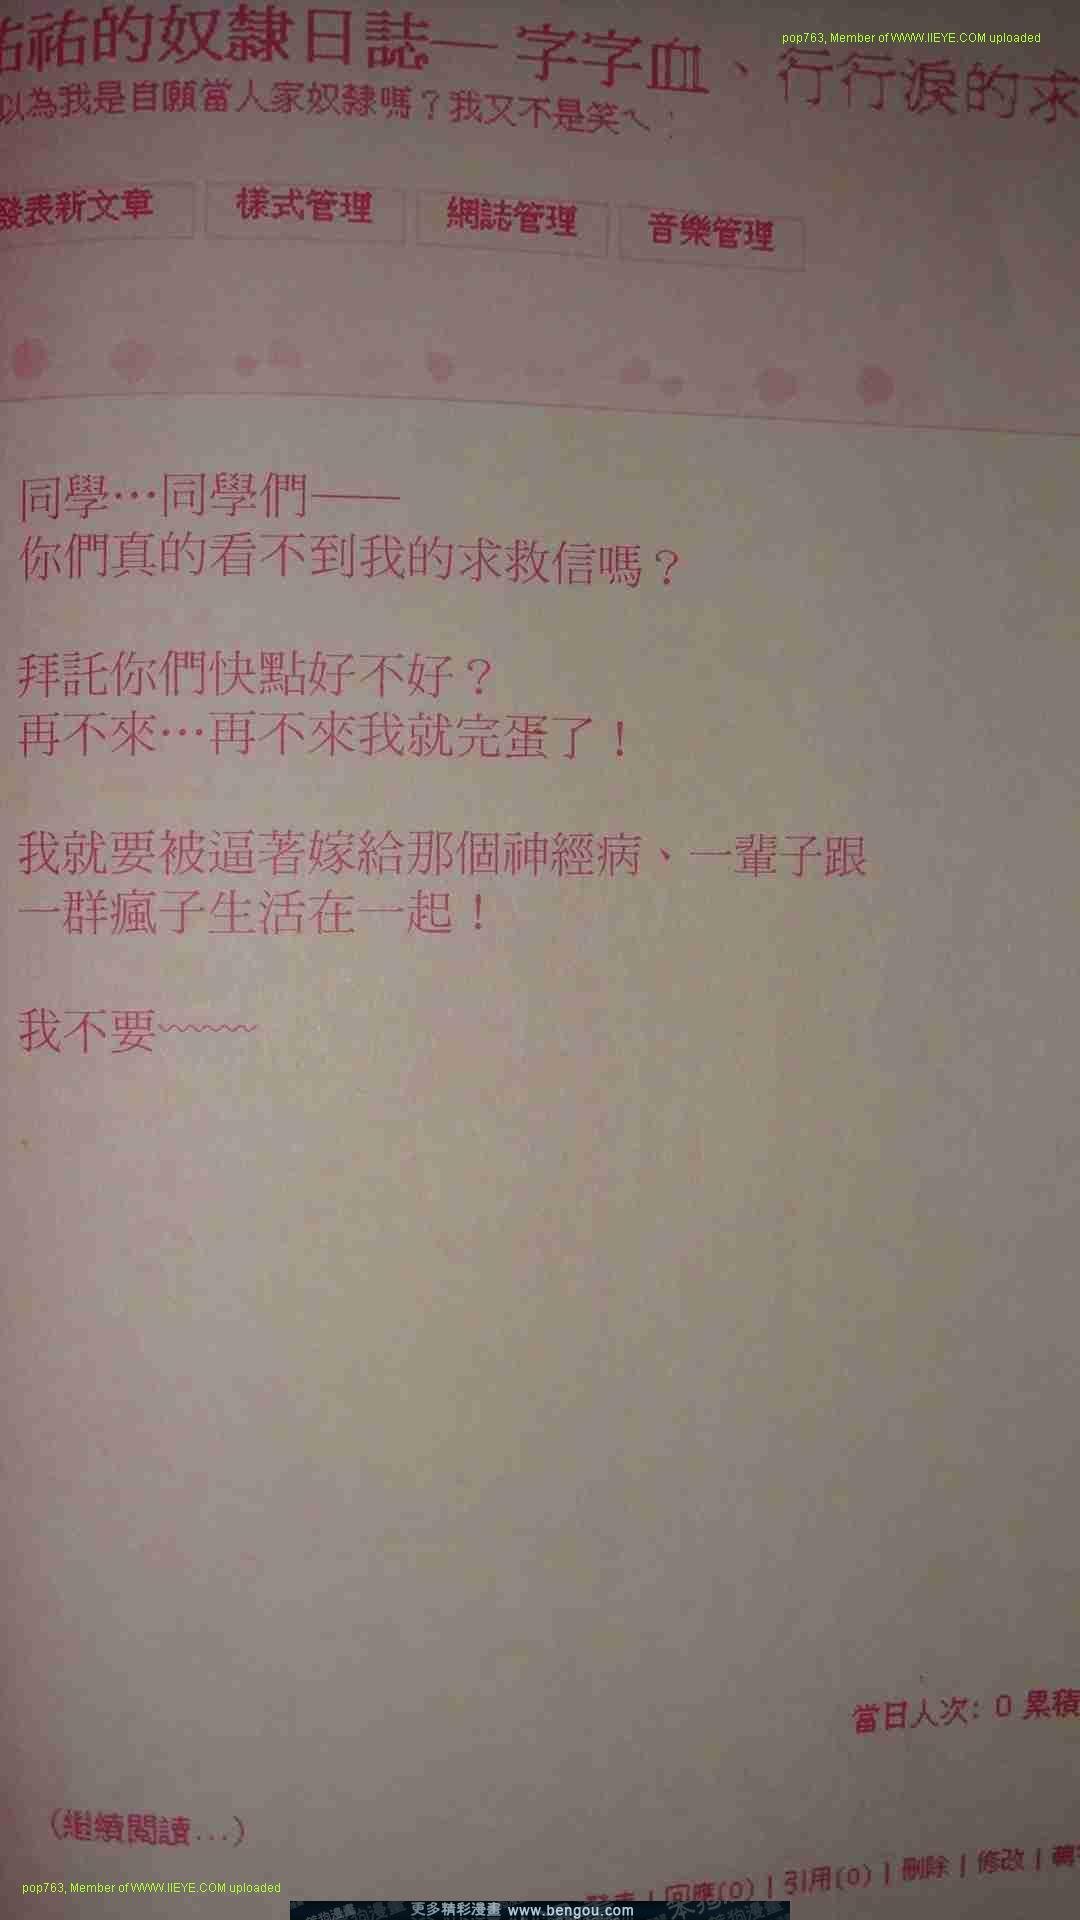 祐祐的奴隸日誌— 字字血、行行淚的求
以為我是自願當人家奴隸嗎？我又不是笑ㄟ！
pop763, Member of WWW.IIEYE.COM uploaded
發表新文章 樣式管理 網誌管理 音樂管理
同學…同學們——
你們真的看不到我的求救信嗎？
拜託你們快點好不好？
再不來…再不來我就完蛋了！
我就要被逼著嫁給那個神經病、一輩子跟
一群瘋子生活在一起！
我不要~~~~
當日人次: 0 累積
(繼續閱讀...)
回應(0) | 引用(0) | 刪除 | 修改 |
pop763, Member of WWW.IIEYE.COM uploaded
更多精彩漫畫 www.bengou.com